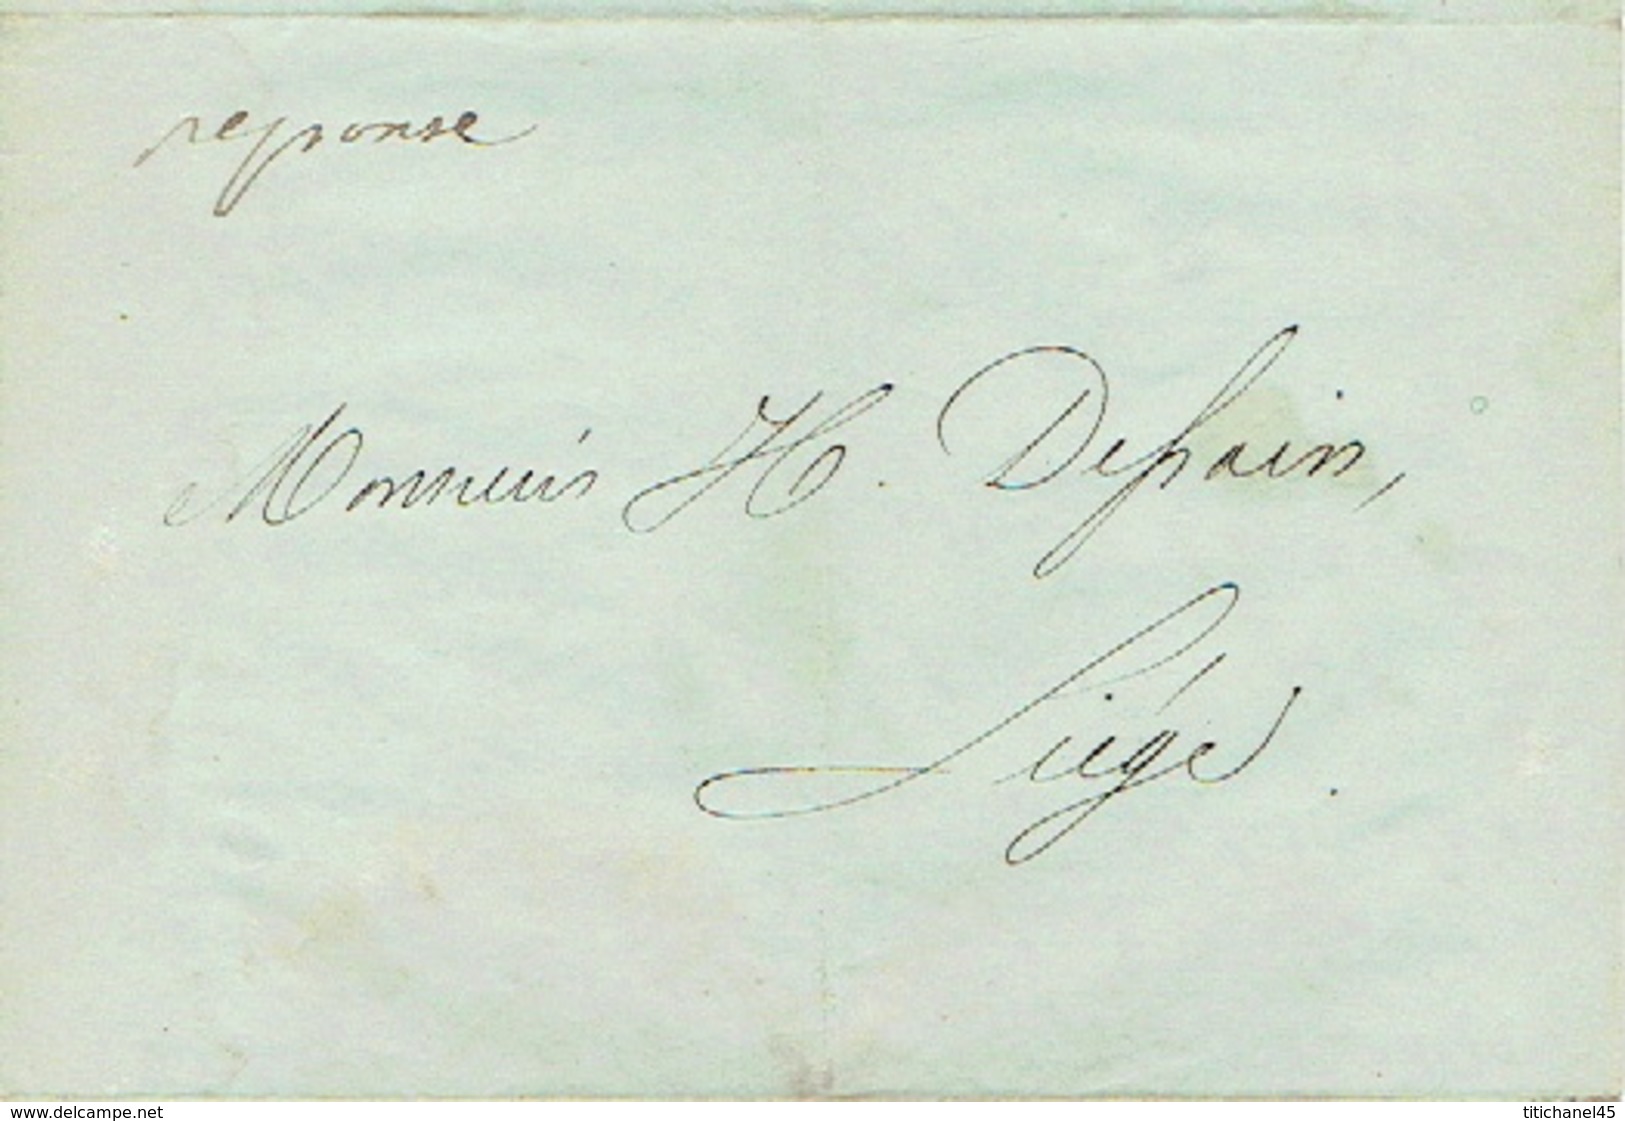 reponse
Monsieur H. Despain,
Liége.
www.delcampe.net
titichanel45